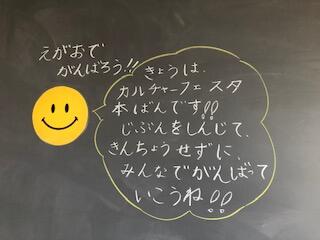 えがおで
がんばろう!!
きょうは、
カルチャーフェスタ
本ばんです!!
じぶんをしんじて、
きんちょうせずに、
みんなでがんばって
いこうね!!